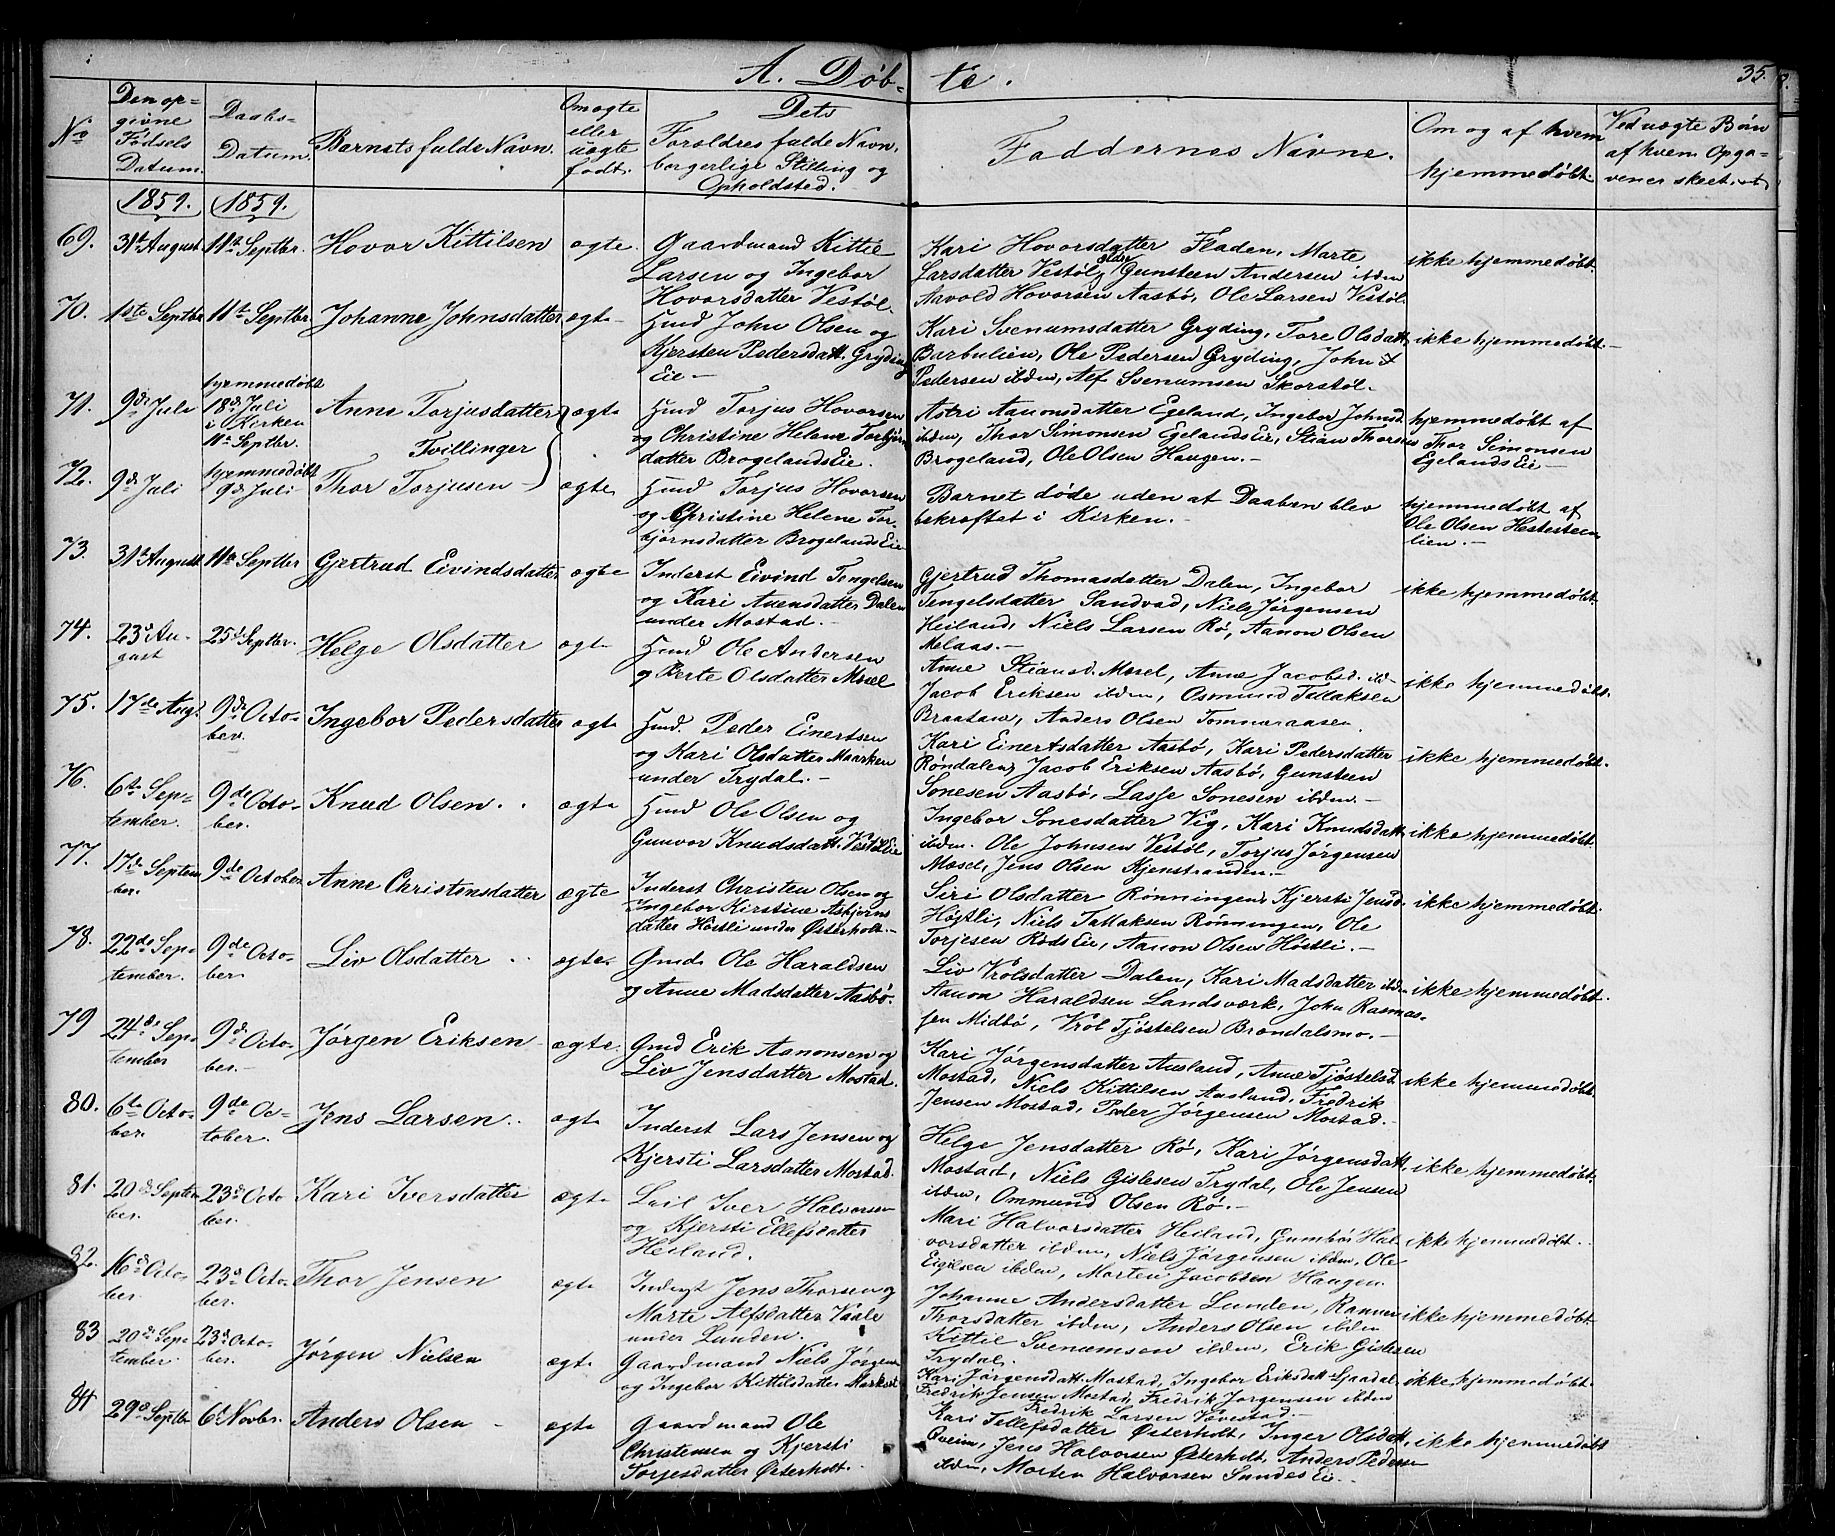 A. Døb-
te.
35.
No
Den op-
givne
Fødsels
Datum.
Daabs-
Datum.
Barnets fulde Navn.
Om ægte
eller
uægte
født.
Dets
Forældres fulde Navn,
borgerlige Stilling og
Opholdsted.
Faddernes Navne.
Om og af hvem
hjemmedøbt.
Ved uægte Børn
af hvem Opga-
vener skeet
1859.
1859.
69.
31te August
11te Septbr.
Hovor Kittilsen
ægte.
Gaardmand Kittil
Larsen og Ingebor
Hovorsdatter Vestøl.
Kari Hovorsdatter Fladen, Marte
Larsdatter Vestøl, Gunsteen Andersen ibden
Aavold Hovorsen Aasbø, Ole Larsen Vestøl
ikke hjemmedøbt.
70.
1ste Septbr
11te Septbr.
Johanne Johnsdatter
ægte
Huusmd John Olsen og
Kjersten Pedersdatt. Gryding
Eie
Kari Svenumsdatter Gryding, Tore Olsdatt
Barbulien, Ole Pedersen Gryding, John
Pedersen ibden, Alf Svenumsen Skorstøl.
ikke hjemmedøbt.
71.
9de Juli
hjemmedøbt
18de Juli
i Kirken
11te Septbr.
Anne Torjusdatter
Tvillinger
ægte
Huusmd Torjus Hovorsen
og Christine Helene Torbjørns
datter Brogelands Eie.
Astri Aanonsdatter Egeland, Ingebor Johnsd
ibden, Thor Simonsen Egelands Eie, Stian Thorsen
Brogeland, Ole Olsen Haugen.
hjemmedøbt af
Thor Simonsen
Egelands Eie
72.
9de Juli
hjemmedøbt
9de Juli
Thor Torjusen
ægte
Huusmd Torjus Hovorsen
og Christine Helene Tor-
bjørnsdatter Brogelands Eie
Barnet døde uden at Daaben blev
bekræftet i Kirken.
hjemmedøbt af
Ole Olsen Hestesteen
lien.
73.
31te August
11te Septbr
Gjertrud Eivindsdatter
ægte
Inderst Eivind Tengelsen
og Kari Auensdatter Dalen
under Mostad.
Gjertrud Thomasdatter Dalen, Ingebor
Tengelsdatter Sandvad, Niels Jørgensen
Heiland, Niels Larsen Rø, Aanon Olsen
Melaas.
ikke hjemmedøbt.
74.
23de Au-
gust
25de Septbr.
Helge Olsdatter
ægte
Huusmd Ole Andersen
og Berte Olsdatter Mosel
Anne Stiansd. Mosel, Anne Jacobsd. ib-
Jacob Eriksen ibden, Osmund Tallaksen
Braatane, Anders Olsen Tomnaraasen
ikke hjemmedøbt.
75.
17de Aug.
9de Octo-
ber.
Ingebor Pedersdatter
ægte
Huusmd. Peder Einertsen
og Kari Olsdatter Maarken
under Trydal.
Kari Einertsdatter Aasbø, Kari Pedersdatter
Røndalen, Jacob Eriksen Aasbø, Gunsteen
Sonesen Aasbø, Lasse Sonesen ibden.
ikke hjemmedøbt.
76.
6te Sep-
tember.
9de Octo-
ber.
Knud Olsen
ægte
Huusmd Ole Olsen og
Gunvor Knudsdatt. Vestøl Eie
Ingebor Sonesdatter Vig, Kari Knudsdatt
ibden. Ole Johnsen Vestøl, Torjus Jørgensen
Mosel, Jens Olsen Kjenstranden.
ikke hjemmedøbt.
77.
17de Septem
ber.
9de October
Anne Christensdatter
ægte
Inderst Christen Olsen og
Ingebor Kirstine Asbjørns
datter Høstli under Østerholt.
Siri Olsdatter Rønningen, Kjersti Jensd.
Høstli, Niels Tallaksen Rønningen, Ole
Torjesen Røds Eie, Aanon Olsen Høstli.
ikke hjemmedøbt.
78.
22de Sep-
tember.
9de Octo-
ber.
Liv Olsdatter
ægte.
Gmd. Ole Haraldsen
og Anne Madsdatter Aasbø.
Liv Vrolsdatter Dalen, Kari Madsdatter ibden
Aanon Haraldsen Landsværk, John Rasmus-
sen Midbø, Vrol Tjøstelsen Brandalsmo.
ikke hjemmedøbt.
79
24de Sep-
tember
9de Octo-
ber.
Jørgen Eriksen
ægte.
Gmd Erik Aanonsen og
Liv Jensdatter Mostad.
Kari Jørgensdatter Ausland, Anne Tjøstelsd.
Mostad, Niels Kittilsen Ausland, Fredrik
Jensen Mostad, Peder Jørgensen Mostad.
ikke hjemmedøbt.
80.
6te Octo-
ber.
9de Oc-
tober.
Jens Larsen
ægte
Inderst Lars Jensen og
Kjersti Larsdatter Mostad.
Helge Jensdatter Rø, Kari Jørgensdatt.
Mostad, Niels Gislesen Trydal, Ole Jensen
ibden, Ommund Olsen Rø.
ikke hjemmedøbt.
81.
20de Septem
ber.
23de Octo
ber.
Kari Iversdatter
ægte
Leil Iver Halvorsen
og Kjersti Ellefsdatter
Heiland.
Mari Halvorsdatter Heiland, Gumbør Hal-
vorsdatter ibden, Niels Jørgensen ibden, Ole
Eigilsen ibden, Morten Jacobsen Haugen
ikke hjemmedøbt.
82.
16de Octo-
ber.
23de Octo-
ber.
Thor Jensen
ægte
Jens Thorsen og
Marte Alfsdatter Vaale
under Lunden.
Johanne Andersdatter Lunden, Rannei
Thorsdatter ibden, Anders Olsen ibden
Kittil Svenumsen ibden, Erik Gislesen
Trydal.
ikke hjemmedøbt.
83
20de Sep-
tember.
23de Octo-
ber.
Jørgen Nielsen
ægte
Gaardmand Niels Jørgens
og Ingebor Kittilsdatter
Kari Jørgensdatt. Mostad, Ingebor Eriksdatt. Gjaadal
Fredrik Jensen Mostad, Fredrik Jørgensen ibden
Fredrik Larsen Vævestad.
ikke hjemmedøbt.
84
29de Septbr
6te Novbr.
Anders Olsen
ægte
Gaardmand Ole
Christensen og Kjersti
Torjesdatter Østerholt.
Kari Tellefsdatter Østerholt, Inger Olsdatt.
Øveim, Jens Halvorsen Østerholt, Anders Pedersen
ibden, Morten Halvorsen Sundes Eie.
ikke hjemmedøbt